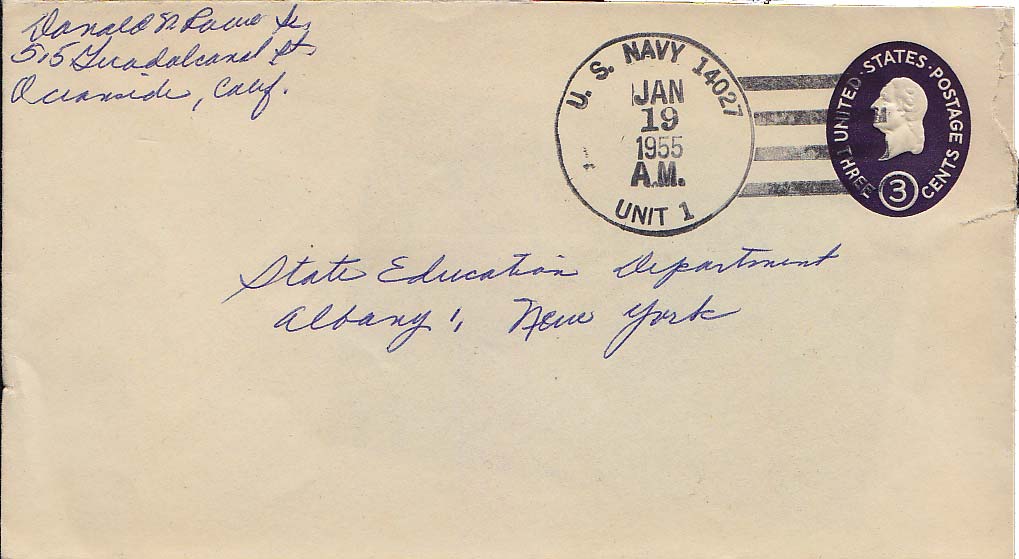 Donald
515 Guadalcanal St
Oceanside, Calif.
U. S. NAVY 14027
JAN
19
1955
A.M.
UNIT 1
UNITED·STATES·POSTAGE
THREE 3 CENTS
State Education Department
Albany 1, New York